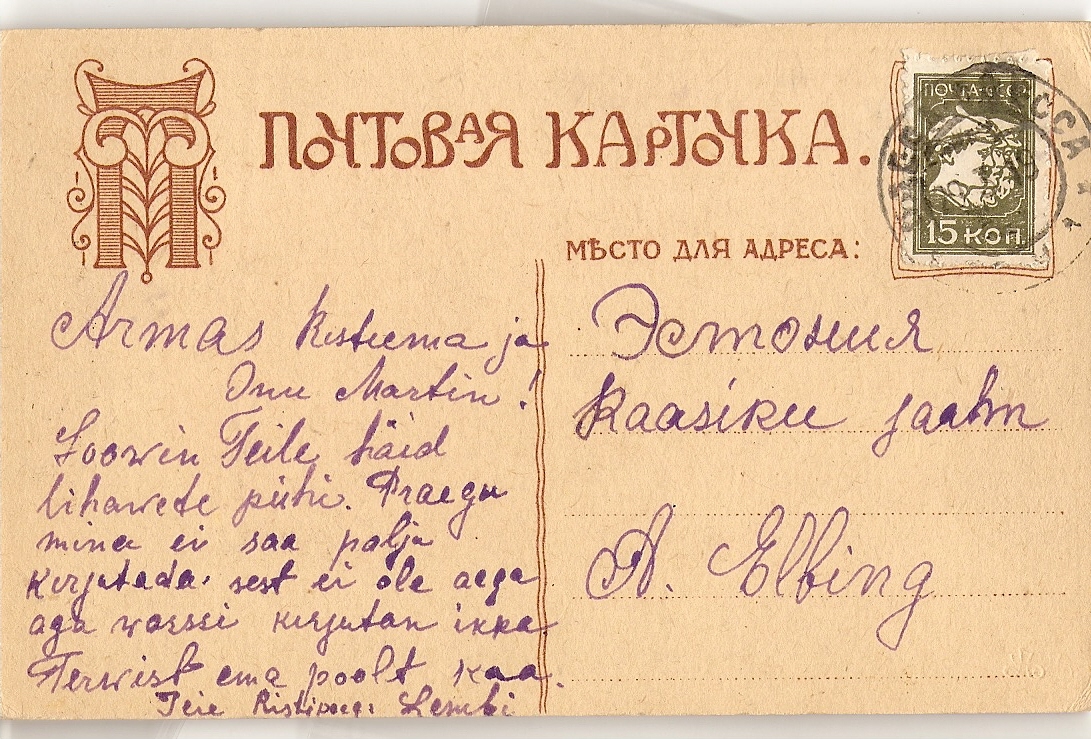 ПОЧТОВАЯ КАРТОЧКА.
ПОЧТА СССР
15 КОП.
МѢСТО ДЛЯ АДРЕСА:
Armas Ristiema ja
Onu Martin!
Soowin Teile häid
lihawete pühi. Praegu
mina ei saa palju
kirjutada. sest ei ole aega
aga warssi kirjutan ikka.
Terwist ema poolt kaa.
Teie Ristipoeg: Lembi
Эстония
Kaasiku jaam
A. Elbing